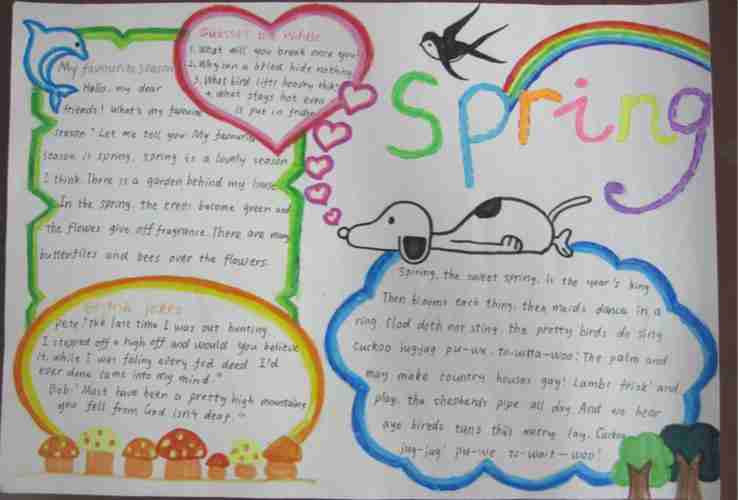 Spring
Guesses the riddle
1. What will you break once you
2. Why can a bread hide nothing
3. What bird lifts heavy
4. What stays hot even
is put in
My favourite season
Hallo, my dear
friends! What's my favorite
season? Let me tell you. My favourite
season is spring, spring is a lovely season
I think. There is a garden behind my house
In the spring, the trees become green and
the flowes give off fragrance. There are many
butterfiles and bees over the flowers.
English jokes
Pete: "The last time I was out hunting,
I stepped off a high off and would you belitve
it, while I was faling every fed deed I'd
ever done came into my mind."
Bob: "Must have been a pretty high mountaine
you fell from God isn't deaf."
Spiring, the sweet spring, is the year's king
Then blooms each thing, then maids dance in a
ring Clod doth not sting, the pretty birds do sing
Cuckoo jugjug pu-we, to-witta-woo! The palm and
may make country houses gay! Lambs frisk and
play, the shepherds pipe all day And we hear
aye bireds tune this merry lay, Cuckoo
jug-jug! pu-we to-wait-woo!